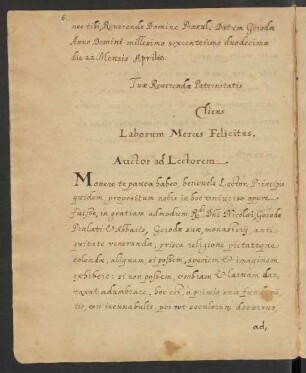 6.
nec tibi Reverende Domine Præsul. Datum Gorodæ
Anno Domini millesimo sexcentesimo duodecimo
die 22 Mensis Aprilis.
Tuæ Reverendæ Paternitatis
Cliens
Laborum Merces Felicitas.
Auctor ad Lectorem
Monere te pauca habeo, benevole Lector. Principio
quidem propositum nobis in hoc universo opere
fuisse, in gratiam admodum Rdi Dni Nicolai Gorodæ
Prælati et Abbatis, Gorodæ suæ monasterij, anti-
quitate venerandæ, prisca religione pietateque
colendæ, aliquam, si possem, speciem et imaginem
exhibere: si non possem, umbram et larvam dun-
taxat adumbrare, hoc est, a primis suis fundamen-
tis, ceu incunabulis, per tot seculorum decursus,
ad,